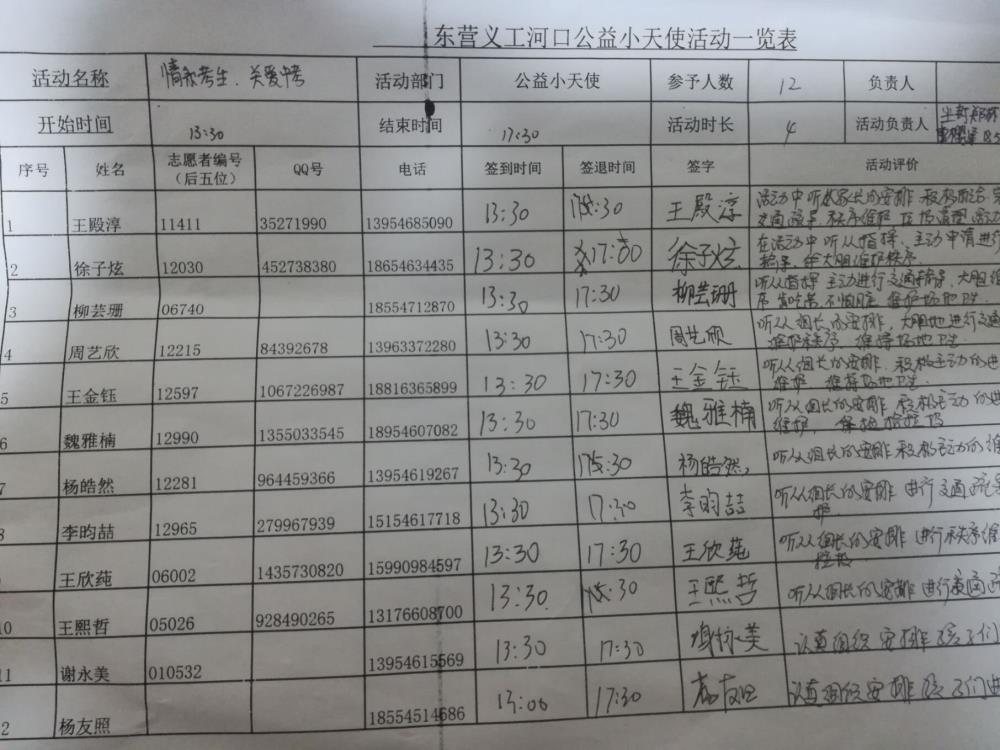 东营义工河口公益小天使活动一览表
活动名称 情系考生、关爱中考 活动部门 公益小天使 参予人数 12 负责人
开始时间 13:30 结束时间 17:30 活动时长 4 活动负责人
序号 姓名 志愿者编号（后五位） QQ号 电话 签到时间 签退时间 签字 活动评价
1 王殿淳 11411 35271990 13954685090 13:30 17:30 王殿淳
2 徐子炫 12030 452738380 18654634435 13:30 17:00 徐子炫 在活动中听从指挥、主动申请进行
3 柳芸珊 06740 18554712870 13:30 17:30 柳芸珊 听从指挥 主动进行交通
4 周艺欣 12215 84392678 13963372280 13:30 17:30 周艺欣 听从组长的安排，大胆地进行交通
5 王金钰 12597 1067226987 18816365899 13:30 17:30 王金钰 听从组长的安排、积极主动的进
6 魏雅楠 12990 1355033545 18954607082 13:30 17:30 魏雅楠 听从组长的安排 积极主动的
7 杨皓然 12281 964459366 13954619267 13:30 17:30 杨皓然 听从组长的安排 积极主动的维
8 李昀喆 12965 279967939 15154617718 13:30 17:30 李昀喆 听从组长的安排 进行交通疏导
9 王欣莼 06002 1435730820 15990984597 13:30 17:30 王欣莼 听从组长的安排 进行秩序维
10 王熙哲 05026 928490265 13176608700 13:30 17:30 王熙哲 听从组长的安排 进行交通疏
11 谢永美 010532 13954615569 13:30 17:30 谢永美 认真组织 安排孩子们
12 杨友照 18554514686 13:00 17:30 认真组织安排孩子们进